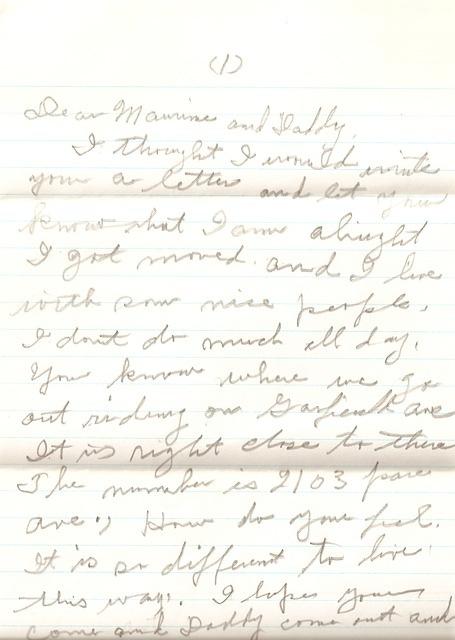 (1)
Dear Maurine and Daddy,
I thought I would write
your a letter and let your
know that I am alright
I got moved. and I live
with som nice people.
I dont do much all day.
You know where we go
out riding on Garfield ave
It is right close to there
The number is 2103 
ave., How do your feel.
It is so different to live
this way. I hope your
come and Daddy come out and